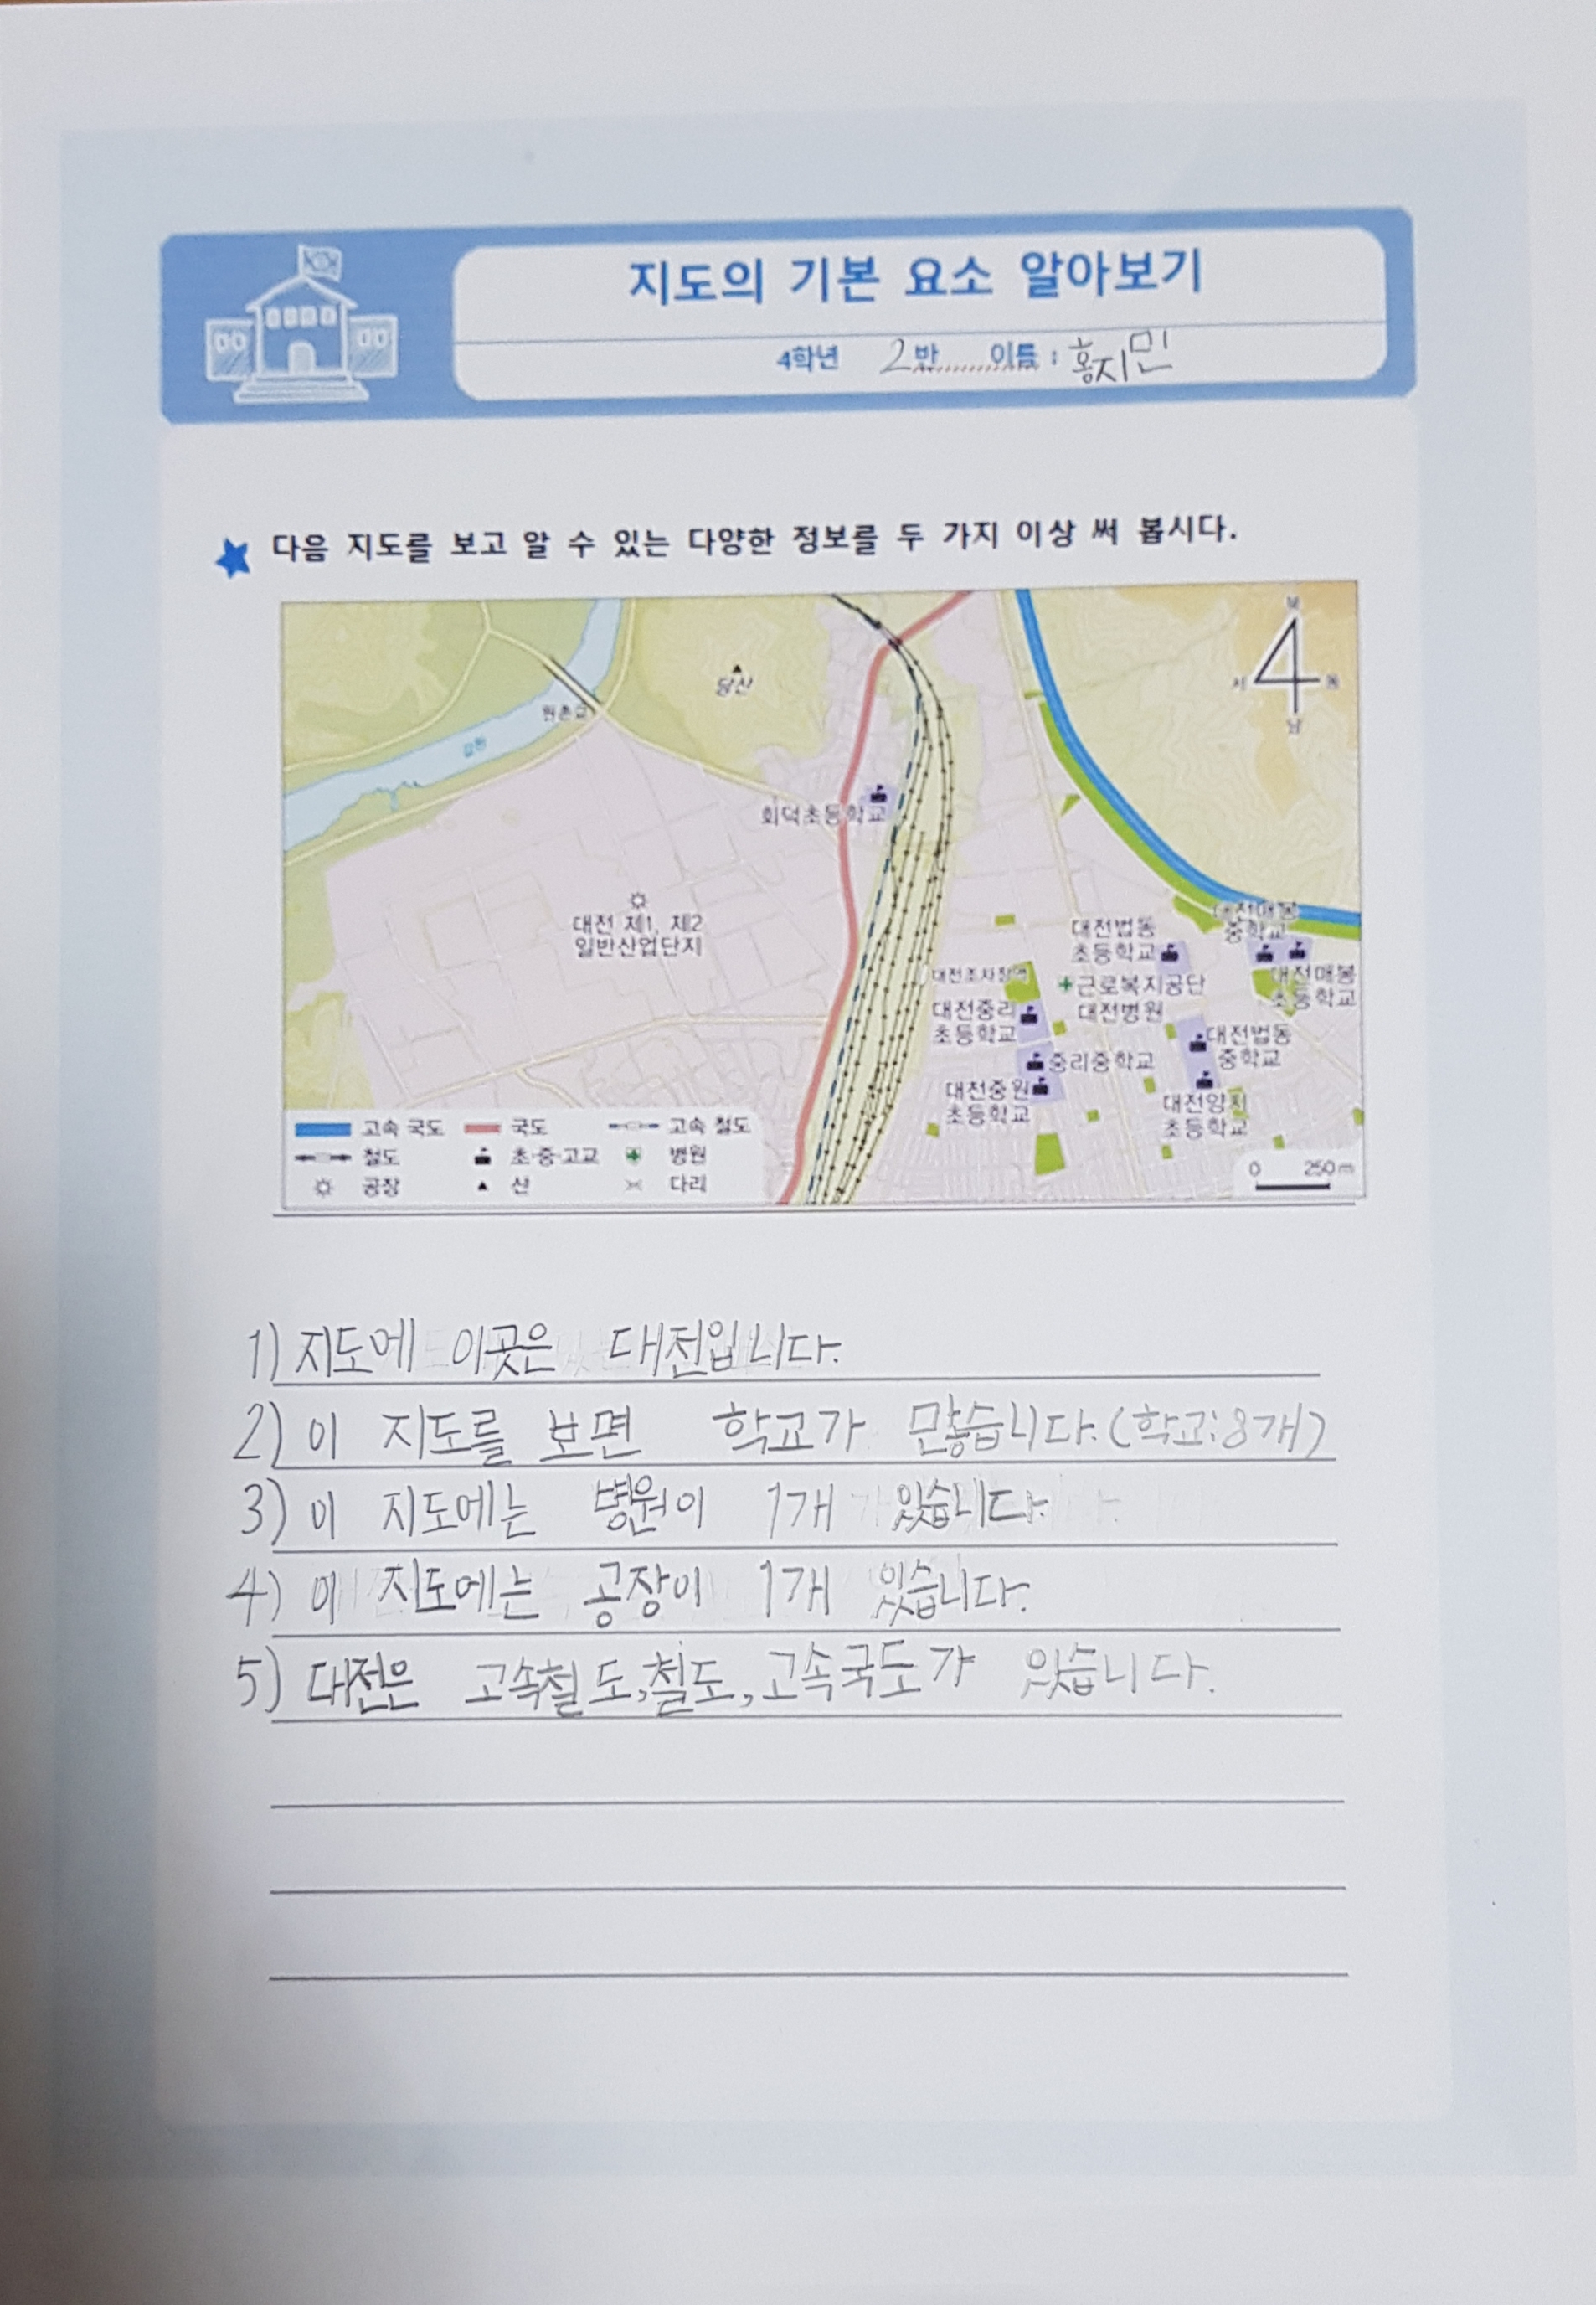 지도의 기본 요소 알아보기
4학년 2반 이름 : 홍지민
다음 지도를 보고 알 수 있는 다양한 정보를 두 가지 이상 써 봅시다.
북
서 동
남
당산
원촌교
갑천
회덕초등학교
대전 제1, 제2
일반산업단지
대전법동
초등학교
대전매봉
중학교
대전조차장역
근로복지공단
대전병원
대전매봉
초등학교
대전중리
초등학교
중리중학교
대전법동
중학교
대전중원
초등학교
대전양지
초등학교
고속 국도 국도 고속 철도
철도 초·중·고교 병원
공장 산 다리
0 250 m
1) 지도에 이곳은 대전입니다.
2) 이 지도를 보면 학교가 많습니다.(학교:8개)
3) 이 지도에는 병원이 1개 있습니다.
4) 이 지도에는 공장이 1개 있습니다.
5) 대전은 고속철도,철도,고속국도가 있습니다.